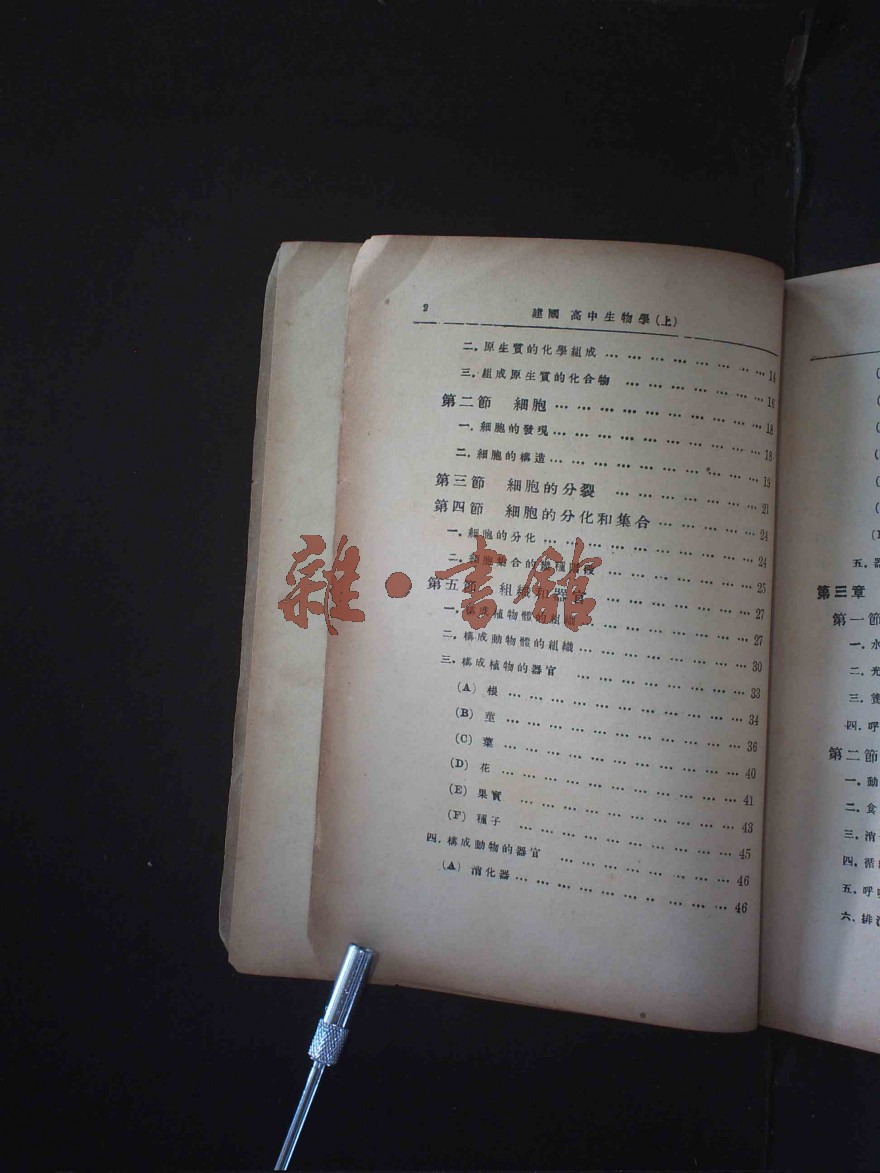 2 建國 高中生物學(上)
二.原生質的化學組成 … … … … … … … … 14
三.組成原生質的化合物 … … … … … … … 16
第二節 細胞 … … … … … … … … … … 18
一.細胞的發現 … … … … … … … … … … 18
二.細胞的構造 … … … … … … … … … … 19
第三節 細胞的分裂 … … … … … … … 21
第四節 細胞的分化和集合 … … … … … 24
一.細胞的分化 … … … … … … … … … … 24
二.細胞集合的 … … … … … … … 25
第五節 組織和器官 … … … … … … … 27
一.構成植物體的組織 … … … … … … … 27
二.構成動物體的組織 … … … … … … … … 30
三.構成植物的器官 … … … … … … … … 33
(A) 根 … … … … … … … … … … … 34
(B) 莖 … … … … … … … … … … … 36
(C) 葉 … … … … … … … … … … … 40
(D) 花 … … … … … … … … … … … 41
(E) 果實 … … … … … … … … … … 43
(F) 種子 … … … … … … … … … … 45
四.構成動物的器官 … … … … … … … … 46
(A) 消化器 … … … … … … … … … … 46
五.器
第三章
第一節
一.水
二.光
三.養
四.呼
第二節
一.動
二.食
三.消
四.循
五.呼
六.排
雜·書館